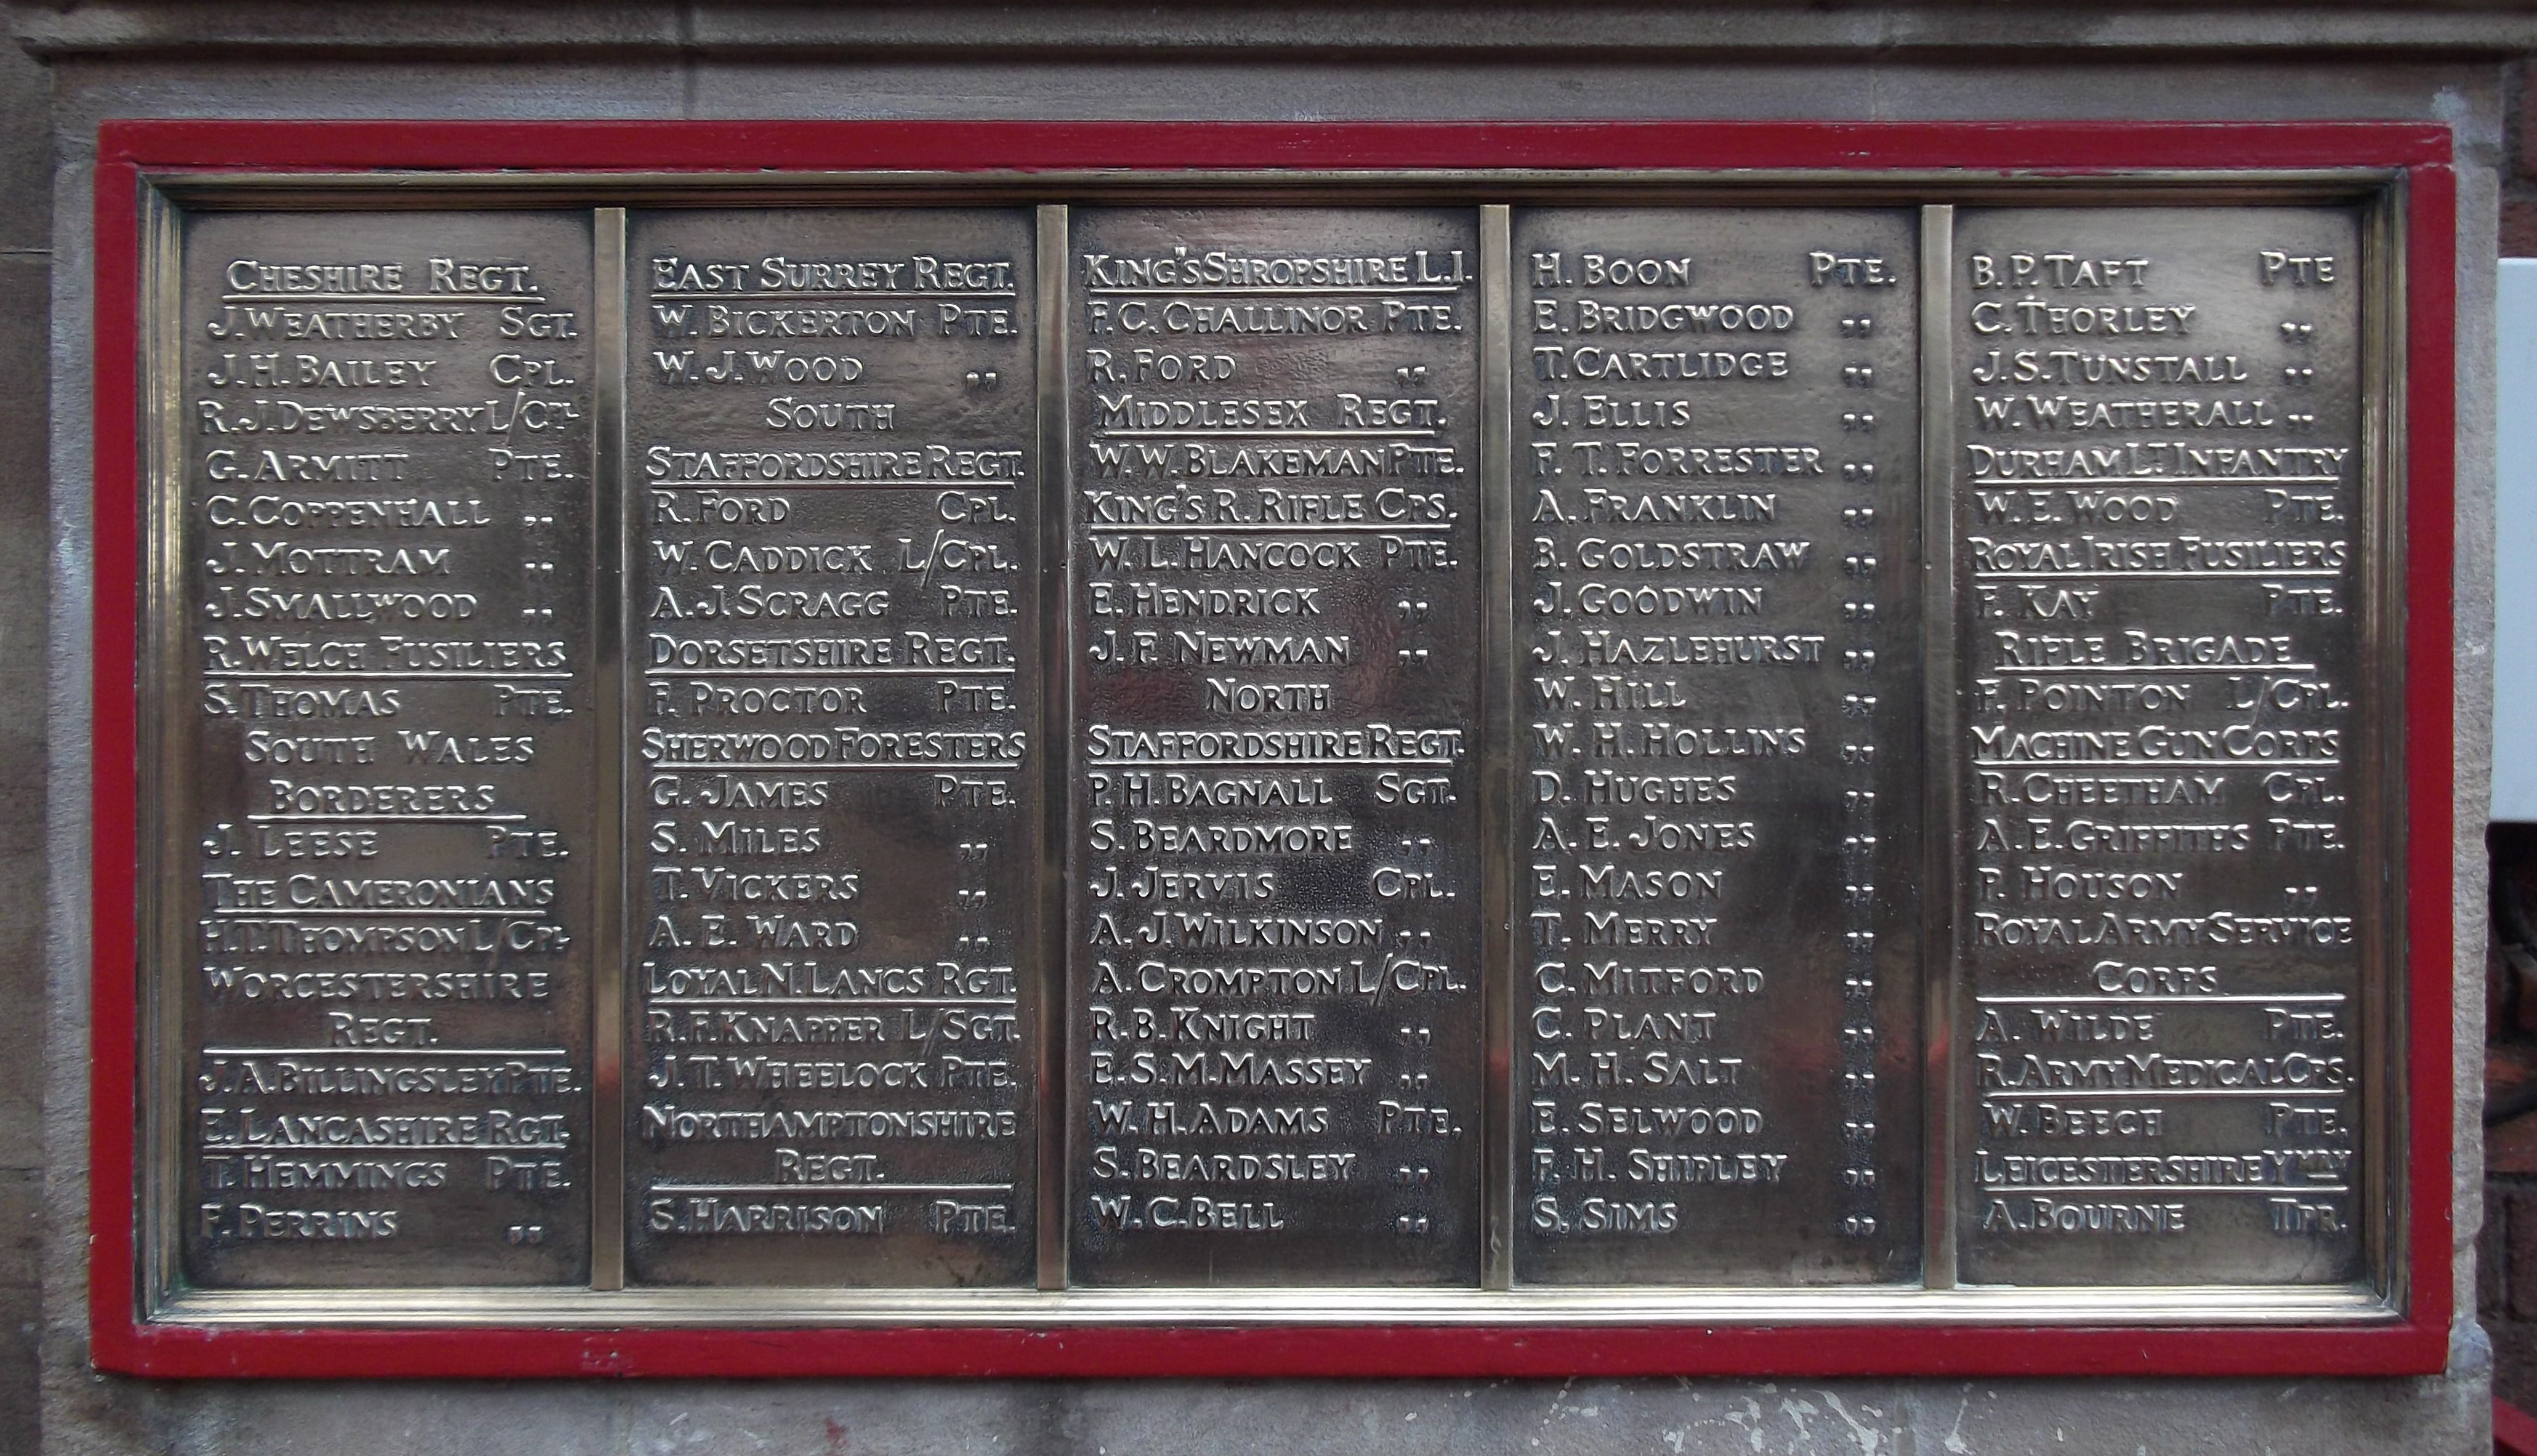 CHESHIRE REGT.
J. WEATHERBY SGT.
J. H. BAILEY CPL.
R. J. DEWSBERRY L/CPL
G. ARMITT PTE.
C. COPPENHALL ,,
J. MOTTRAM ,,
J. SMALLWOOD ,,
R. WELCH FUSILIERS
S. THOMAS PTE.
SOUTH WALES
BORDERERS
J. LEESE PTE.
THE CAMERONIANS
H. T. THOMPSON L/CPL
WORCESTERSHIRE
REGT.
J. A. BILLINGSLEY PTE.
E. LANCASHIRE RGT.
T. HEMMINGS PTE.
F. PERRINS ,,
EAST SURREY REGT.
W. BICKERTON PTE.
W. J. WOOD ,,
SOUTH
STAFFORDSHIRE REGT.
R. FORD CPL.
W. CADDICK L/CPL.
A. J. SCRAGG PTE.
DORSETSHIRE REGT.
F. PROCTOR PTE.
SHERWOOD FORESTERS
G. JAMES PTE.
S. MILES ,,
T. VICKERS ,,
A. E. WARD ,,
LOYAL N. LANCS RGT.
R. F. KNAPPER L/SGT.
J. T. WHEELOCK PTE.
NORTHAMPTONSHIRE
REGT.
S. HARRISON PTE.
KING'S SHROPSHIRE L.I.
F. C. CHALLINOR PTE.
R. FORD ,,
MIDDLESEX REGT.
W. W. BLAKEMAN PTE.
KING'S R. RIFLE CPS.
W. L. HANCOCK PTE.
E. HENDRICK ,,
J. F. NEWMAN ,,
NORTH
STAFFORDSHIRE REGT.
P. H. BAGNALL SGT.
S. BEARDMORE ,,
J. JERVIS CPL.
A. J. WILKINSON ,,
A. CROMPTON L/CPL.
R. B. KNIGHT ,,
E. S. M. MASSEY ,,
W. H. ADAMS PTE.
S. BEARDSLEY ,,
W. C. BELL ,,
H. BOON PTE.
E. BRIDGWOOD ,,
T. CARTLIDGE ,,
J. ELLIS ,,
F. T. FORRESTER ,,
A. FRANKLIN ,,
B. GOLDSTRAW ,,
J. GOODWIN ,,
J. HAZLEHURST ,,
W. HILL ,,
W. H. HOLLINS ,,
D. HUGHES ,,
A. E. JONES ,,
E. MASON ,,
T. MERRY ,,
C. MITFORD ,,
C. PLANT ,,
M. H. SALT ,,
E. SELWOOD ,,
F. H. SHIPLEY ,,
S. SIMS ,,
B. P. TAFT PTE
C. THORLEY ,,
J. S. TUNSTALL ,,
W. WEATHERALL ,,
DURHAM LT INFANTRY
W. E. WOOD PTE.
ROYAL IRISH FUSILIERS
F. KAY PTE.
RIFLE BRIGADE
F. POINTON L/CPL.
MACHINE GUN CORPS
R. CHEETHAM CPL.
A. E. GRIFFITHS PTE.
P. HOUSON ,,
ROYAL ARMY SERVICE
CORPS
A. WILDE PTE.
R. ARMY MEDICAL CPS.
W. BEECH PTE.
LEICESTERSHIRE YMRY
A. BOURNE TPR.